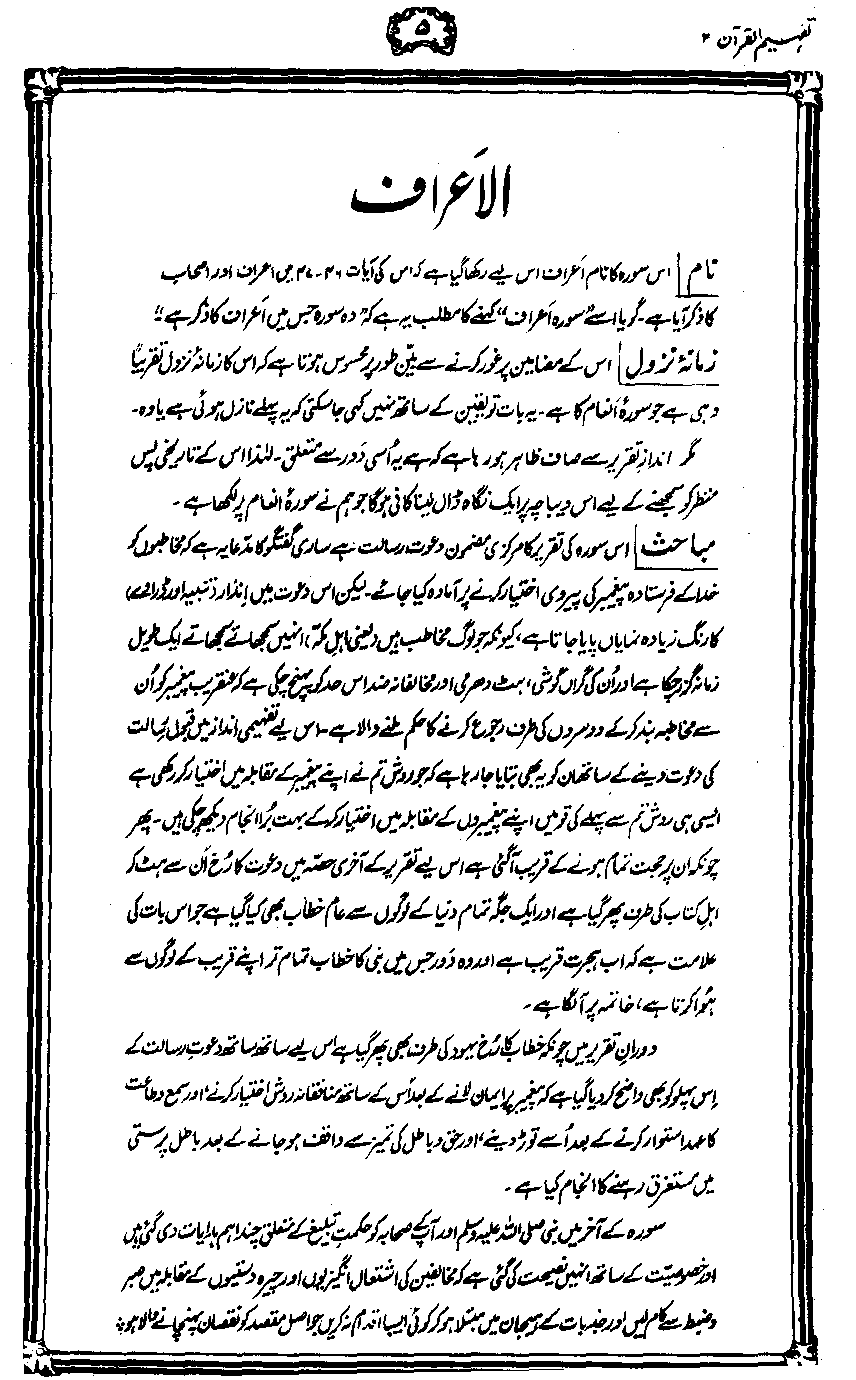 تفہیم القرآن ۲
۵
الاَعراف
نام اس سورہ کا نام اَعراف اس لیے رکھا گیا ہے کہ اس کی آیات ۴۶-۴۷ میں اعراف اور اصحاب
کا ذکر آیا ہے۔ گویا اسے "سورہ اَعراف" کہنے کا مطلب یہ ہے کہ "وہ سورہ جس میں اَعراف کا ذکر ہے"
زمانۂ نزول اس کے مضامین پر غور کرنے سے بیّن طور پر محسوس ہوتا ہے کہ اس کا زمانۂ نزول تقریباً
وہی ہے جو سورۂ اَنعام کا ہے۔ یہ بات تو یقین کے ساتھ نہیں کہی جا سکتی کہ یہ پہلے نازل ہوئی ہے یا وہ۔
مگر اندازِ تقریر سے صاف ظاہر ہو رہا ہے کہ ہے یہ اُسی دَور سے متعلق۔ لہٰذا اس کے تاریخی پس
منظر کو سمجھنے کے لیے اس دیباچہ پر ایک نگاہ ڈال لینا کافی ہوگا جو ہم نے سورۂ انعام پر لکھا ہے۔
مباحث اس سورہ کی تقریر کا مرکزی مضمون دعوت رسالت ہے ساری گفتگو کا مدّعا یہ ہے کہ مخاطبوں کو
خدا کے فرستادہ پیغمبر کی پیروی اختیار کرنے پر آمادہ کیا جائے۔ لیکن اس دعوت میں اِنذار (تنبیہ اور ڈراوے)
کا رنگ زیادہ نمایاں پایا جاتا ہے، کیونکہ جو لوگ مخاطب ہیں (یعنی اہلِ مکّہ) انہیں سمجھاتے سمجھاتے ایک طویل
زمانہ گزر چکا ہے اور اُن کی گراں گوشی، ہٹ دھرمی اور مخالفانہ ضد اس حد کو پہنچ چکی ہے کہ عنقریب پیغمبر کو اُن
سے مخاطبہ بند کر کے دوسروں کی طرف رجوع کرنے کا حکم ملنے والا ہے۔ اس لیے تفہیمی انداز میں قبول رسالت
کی دعوت دینے کے ساتھ ان کو یہ بھی بتایا جا رہا ہے کہ جو روش تم نے اپنے پیغمبر کے مقابلہ میں اختیار کر رکھی ہے
ایسی ہی روش تم سے پہلے کی قومیں اپنے پیغمبروں کے مقابلہ میں اختیار کر کے بہت بُرا انجام دیکھ چکی ہیں۔ پھر
چونکہ ان پر حجت تمام ہونے کے قریب آگئی ہے اس لیے تقریر کے آخری حصّہ میں دعوت کا رُخ اُن سے ہٹ کر
اہلِ کتاب کی طرف پھر گیا ہے اور ایک جگہ تمام دنیا کے لوگوں سے عام خطاب بھی کیا گیا ہے جو اس بات کی
علامت ہے کہ اب ہجرت قریب ہے اور وہ دَور جس میں نبی کا خطاب تمام تر اپنے قریب کے لوگوں سے
ہُوا کرتا ہے، خاتمہ پر آ لگا ہے۔
دورانِ تقریر میں چونکہ خطاب کا رُخ یہود کی طرف بھی پھر گیا ہے اس لیے ساتھ ساتھ دعوتِ رسالت کے
اِس پہلو کو بھی واضح کر دیا گیا ہے کہ پیغمبر پر ایمان لانے کے بعد اُس کے ساتھ منافقانہ روش اختیار کرنے، اور سمع و طاعت
کا عہد استوار کرنے کے بعد اُسے توڑ دینے، اور حق و باطل کی تمیز سے واقف ہو جانے کے بعد باطل پرستی
میں مستغرق رہنے کا انجام کیا ہے۔
سورہ کے آخر میں نبی صلی اللہ علیہ وسلم اور آپ کے صحابہ کو حکمتِ تبلیغ کے متعلق چند اہم ہدایات دی گئی ہیں
اور خصوصیّت کے ساتھ انہیں نصیحت کی گئی ہے کہ مخالفین کی اشتعال انگیزیوں اور چیرہ دستیوں کے مقابلہ میں صبر
و ضبط سے کام لیں اور جذبات کے ہیجان میں مبتلا ہو کر کوئی ایسا اقدام نہ کریں جو اصل مقصد کو نقصان پہنچانے والا ہو۔